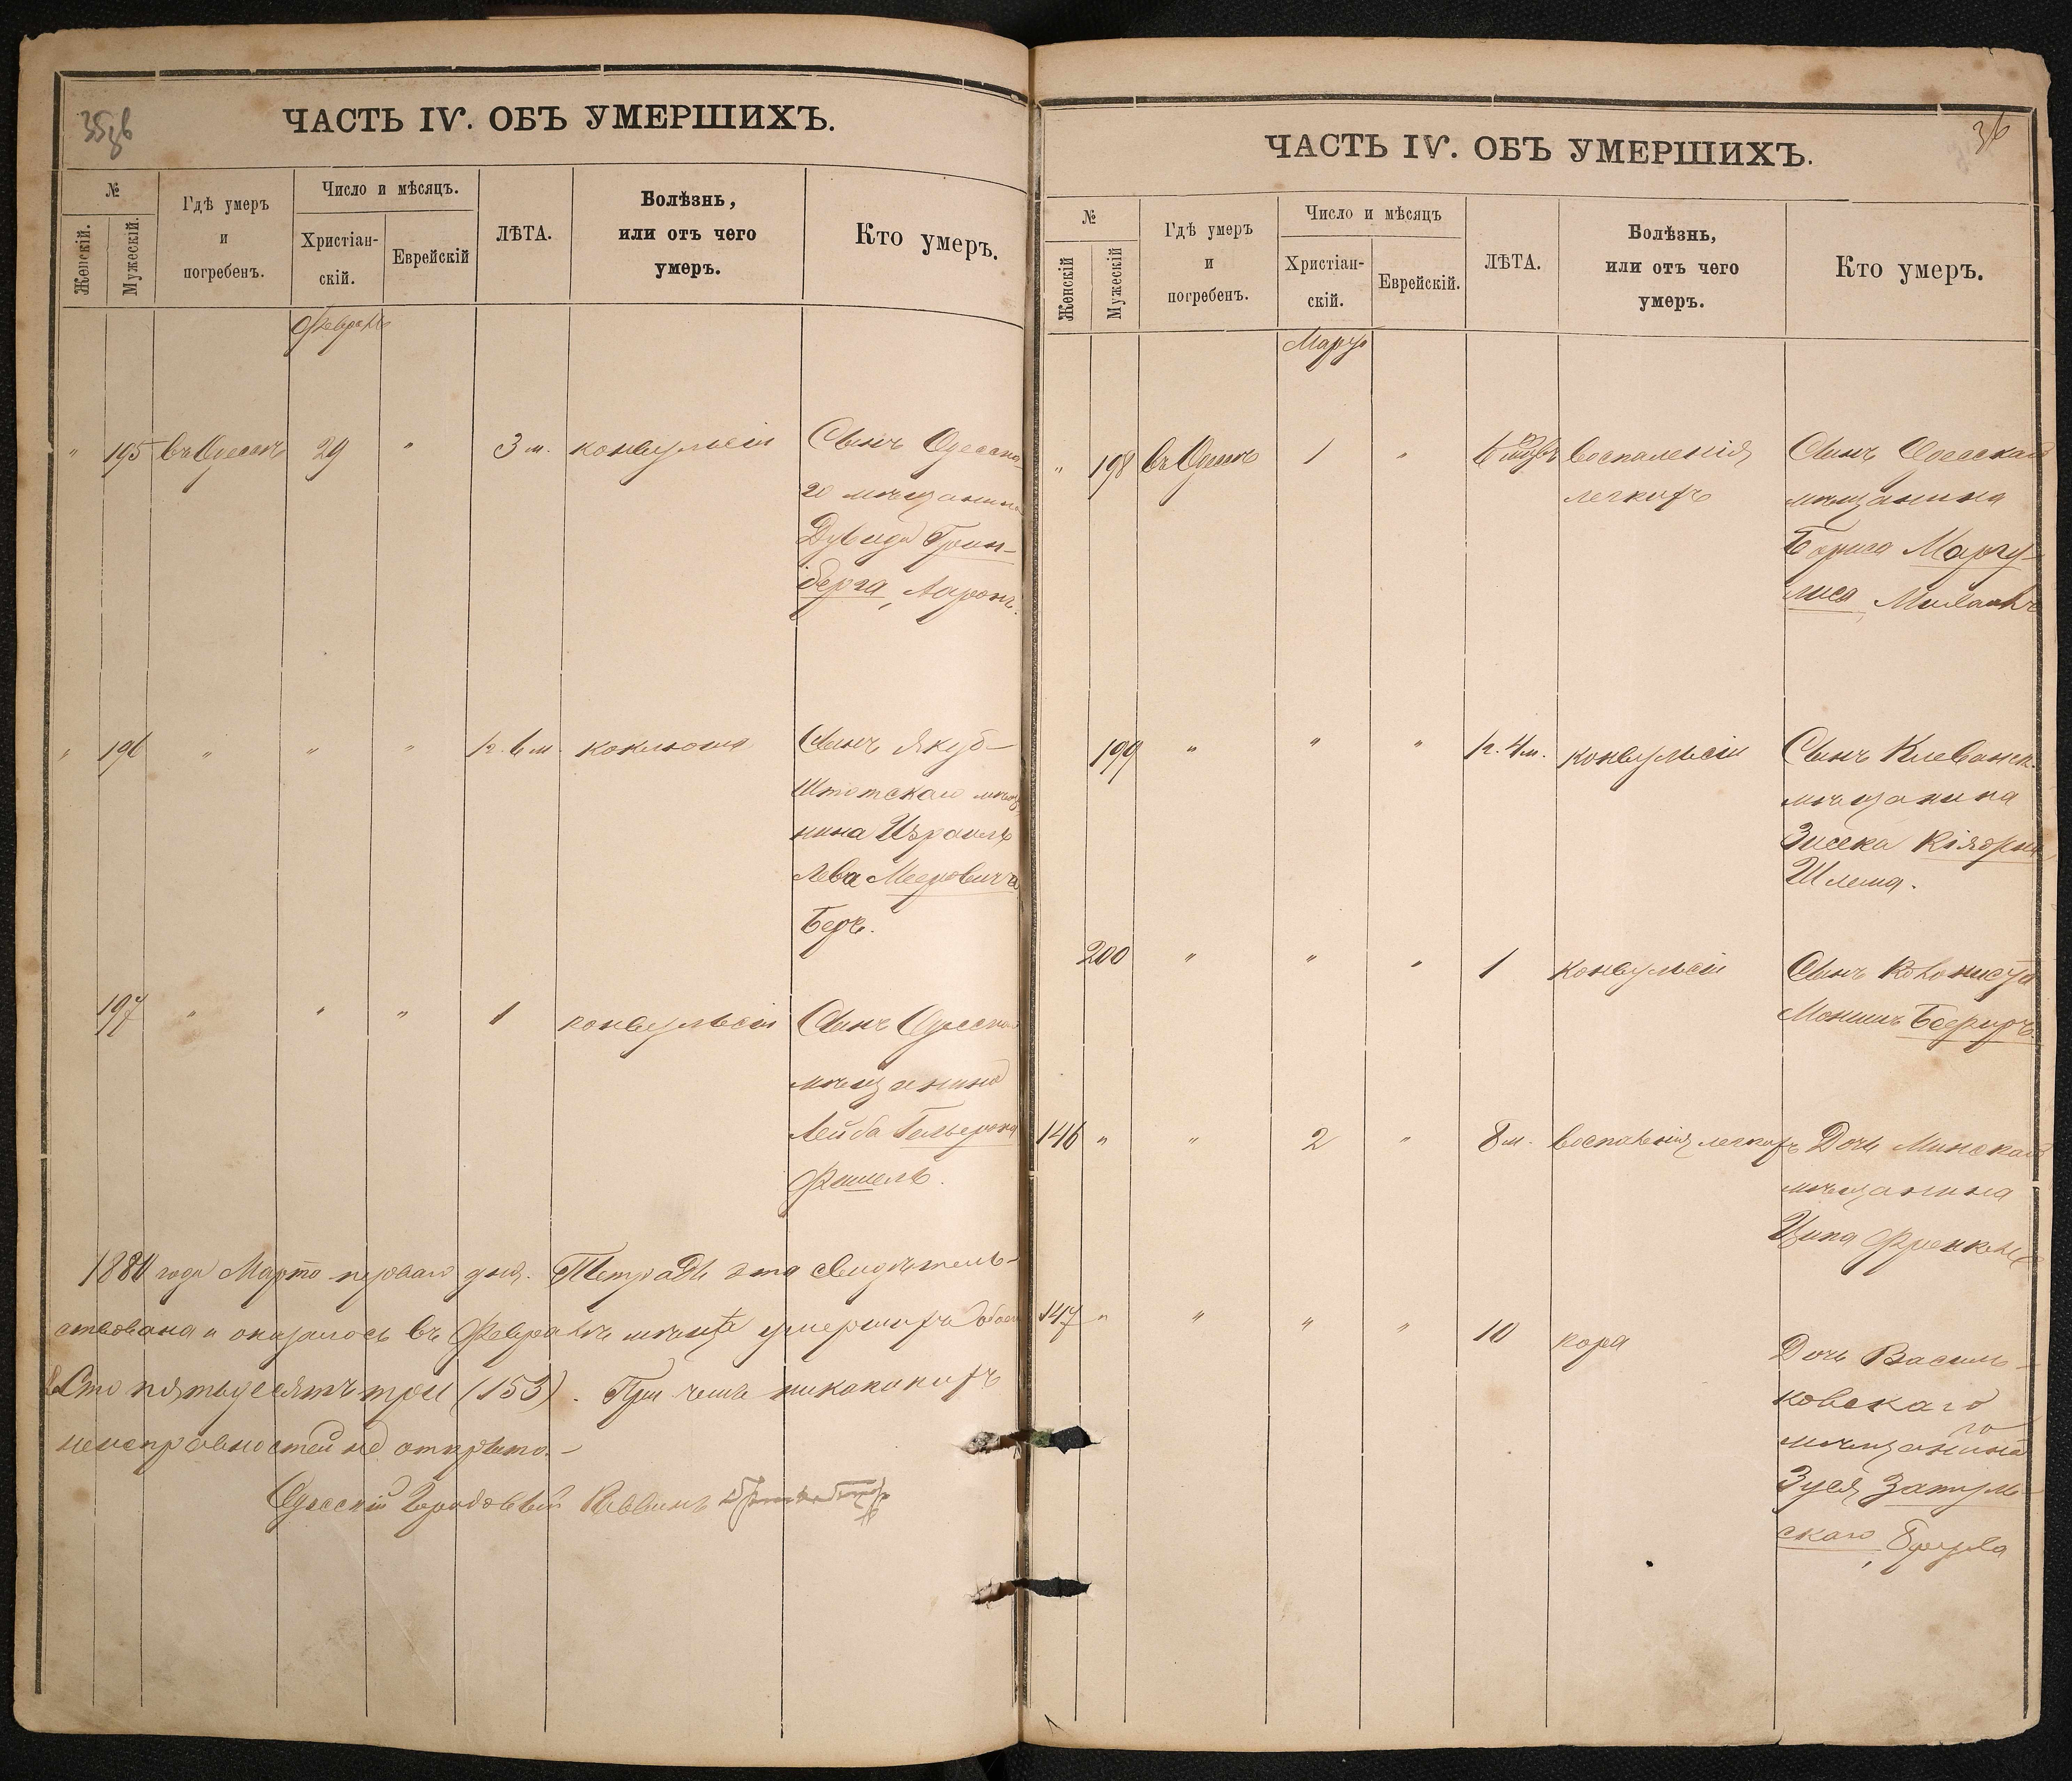 ЧАСТЬ IV. ОБЪ УМЕРШИХЪ.
№
Женскій.
Мужескій.
Гдѣ умеръ
и
погребенъ.
Число и мѣсяцъ.
Христіан-
скій.
Еврейскій
ЛѢТА.
Болѣзнь,
или отъ чего
умеръ.
Кто умеръ.
Февраль
" 195 въ Одессѣ 29 " 3 м. конвульсіи Сынъ Одесска-
го мѣщанина
Дувида Грин-
берга, Ааронъ.
" 196 " " " 1 г. 6 м. коклюша Сынъ Якуб-
Штатскаго
нина Израиль
Лева Мееровича
Беръ.
197 " " " 1 конвульсіи Сынъ
мѣщанина
Лейба
Фишель.
года Марта перваго дня. Тетрадь эта свидѣтель-
ствована и оказалось въ Февралѣ мѣсяцѣ умершихъ
Сто пятьдесятъ три (153). При чемъ никакихъ
неисправностей не открыто.-
Одесскій Городовый Раввинъ
ЧАСТЬ IV. ОБЪ УМЕРШИХЪ.
36
№
Женскій
Мужескій
Гдѣ умеръ
и
погребенъ.
Число и мѣсяцъ
Христіан-
скій.
Еврейскій.
ЛѢТА.
Болѣзнь,
или отъ чего
умеръ.
Кто умеръ.
Мартъ
" 198 въ Одессѣ 1 " воспаленія Сынъ Одесскаго
легкихъ мѣщанина
Бориса Маргу-
лиса, Михаилъ
199 " " " 1 г. 4 м. конвульсіи Сынъ Клеванск.
мѣщанина
Зисека
Шлема.
200 " " " 1 конвульсіи Сынъ Колониста
146 " " 2 " 8 м. воспаленія легкихъ Дочь Минскаго
мѣщанина
147 " " " " 10 коря Дочь Василь-
ковскаго
мѣщанина
Зуся Затуль-
скаго,